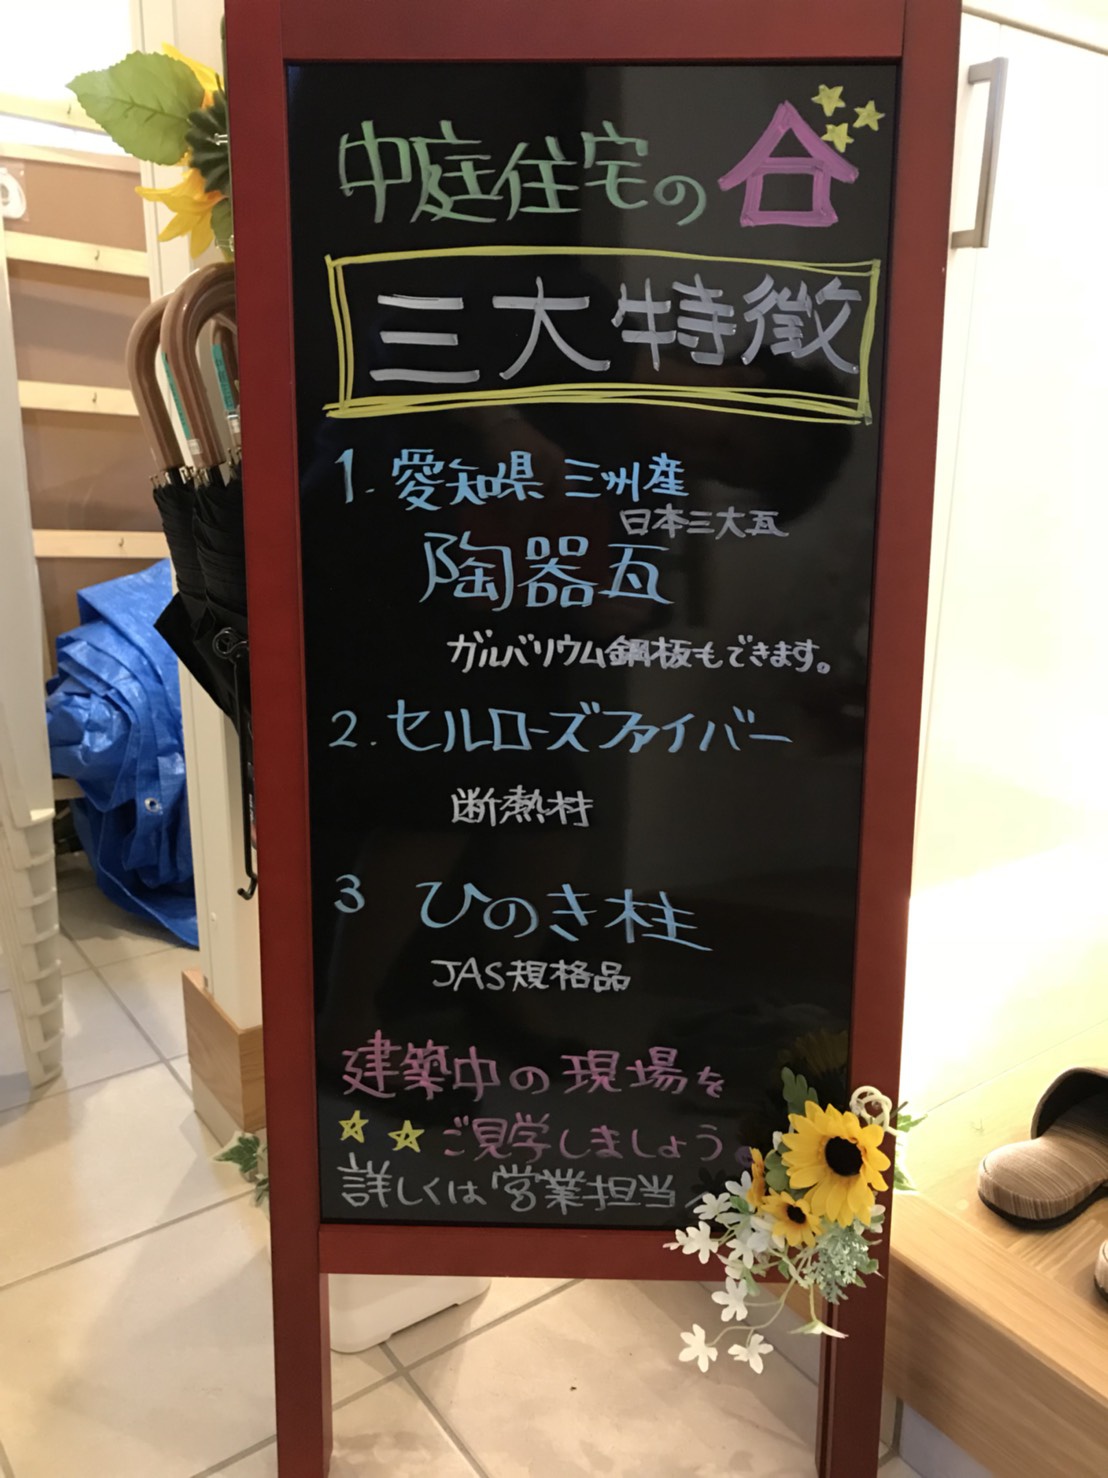 中庭住宅の
三大特徴
1. 愛知県 三州産
日本三大瓦
陶器瓦
ガルバリウム鋼板もできます。
2. セルローズファイバー
断熱材
3 ひのき柱
JAS規格品
建築中の現場を
ご見学しましょう。
詳しくは営業担当